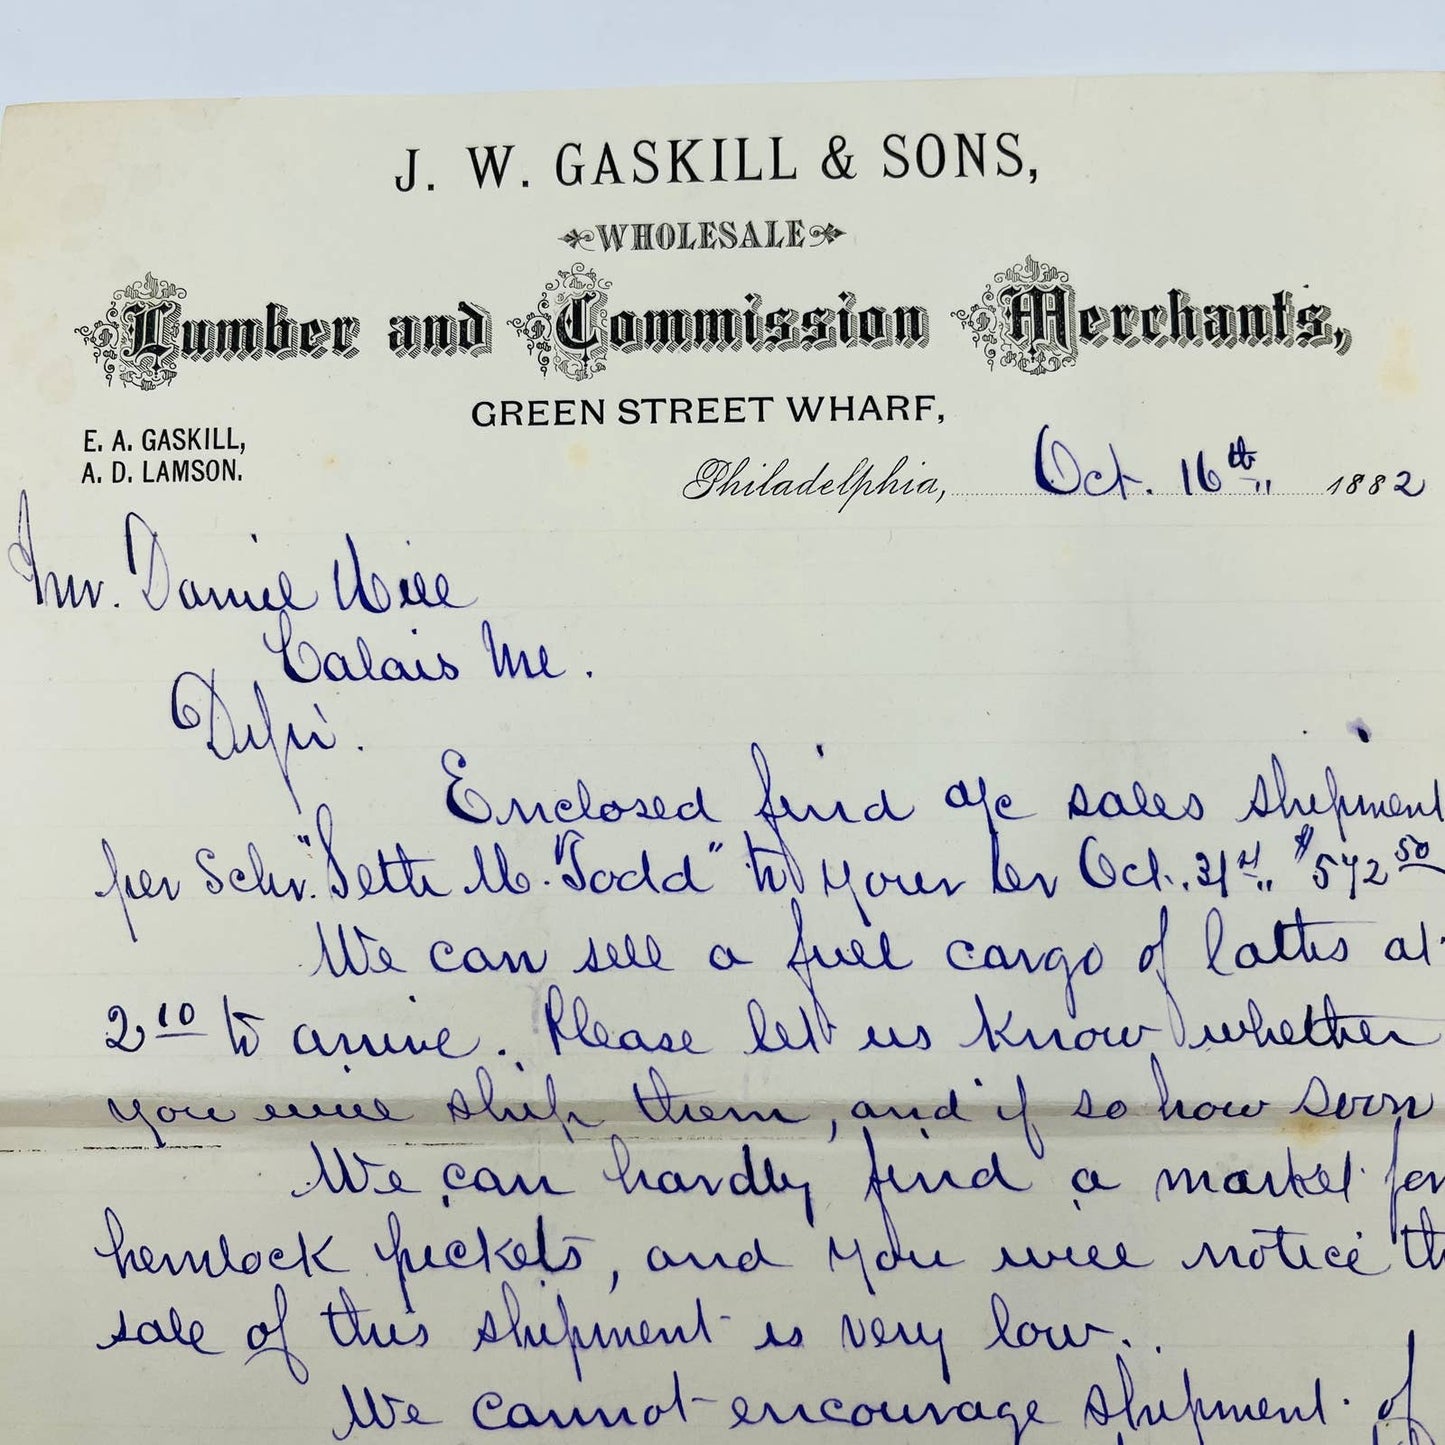 J. W. GASKILL & SONS,
WHOLESALE
Lumber and Commission Merchants,
GREEN STREET WHARF,
E. A. GASKILL,
A. D. LAMSON.
Philadelphia, Oct. 16th 1882
Mr. Daniel Hill
Calais Me.
D Sir.
Enclosed find a/c sales shipment
per Schr. "Seth M. Todd" to your cr Oct. 31st $572 50
We can sell a full cargo of laths at
2 10 to arrive. Please let us know whether
you will ship them, and if so how soon
We can hardly find a market for
hemlock pickets, and you will notice th
sale of this shipment is very low.
We cannot encourage shipment of